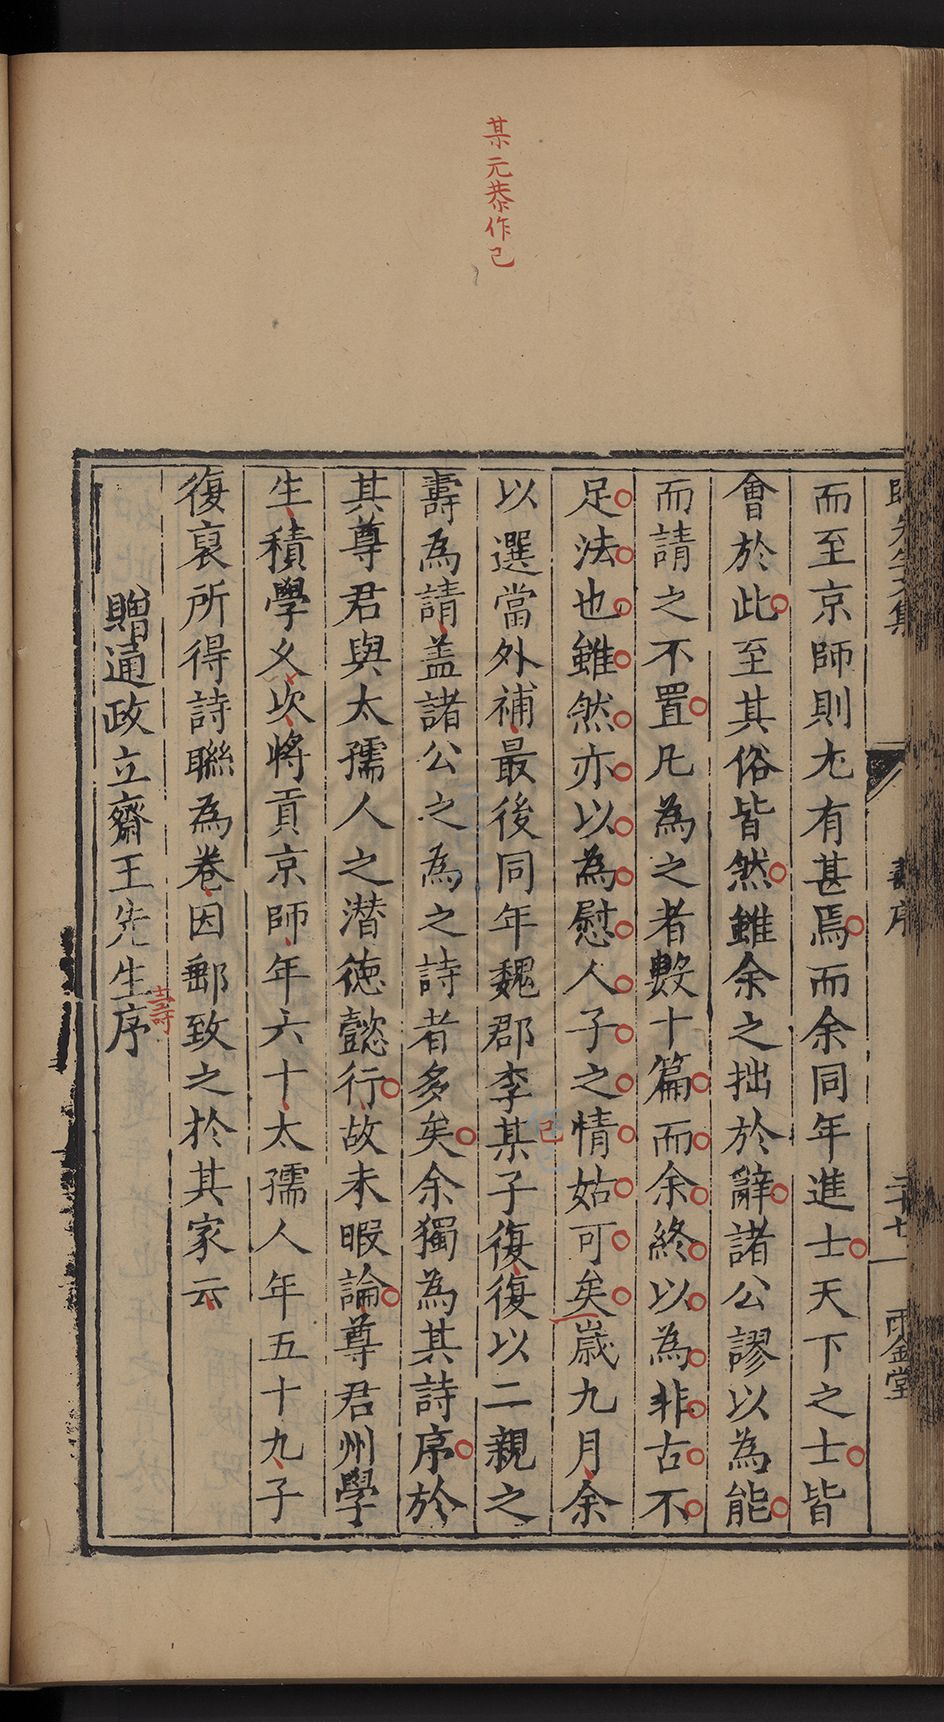 某元恭作已
而至京師則尤有甚焉而余同年進士天下之士皆
會於此至其俗皆然雖余之拙於辭諸公謬以為能
而請之不置凡為之者數十篇而余終以為非古不
足法也雖然亦以為慰人子之情姑可矣歲九月余
以選當外補最後同年魏郡李某子復復以二親之
已
壽為請盖諸公之為之詩者多矣余獨為其詩序於
其尊君與太孺人之潜德懿行故未暇論尊君州學
生積學乆次將貢京師年六十太孺人年五十九子
復裒所得詩聯為卷因郵致之於其家云
贈通政立齋王先生序
壽